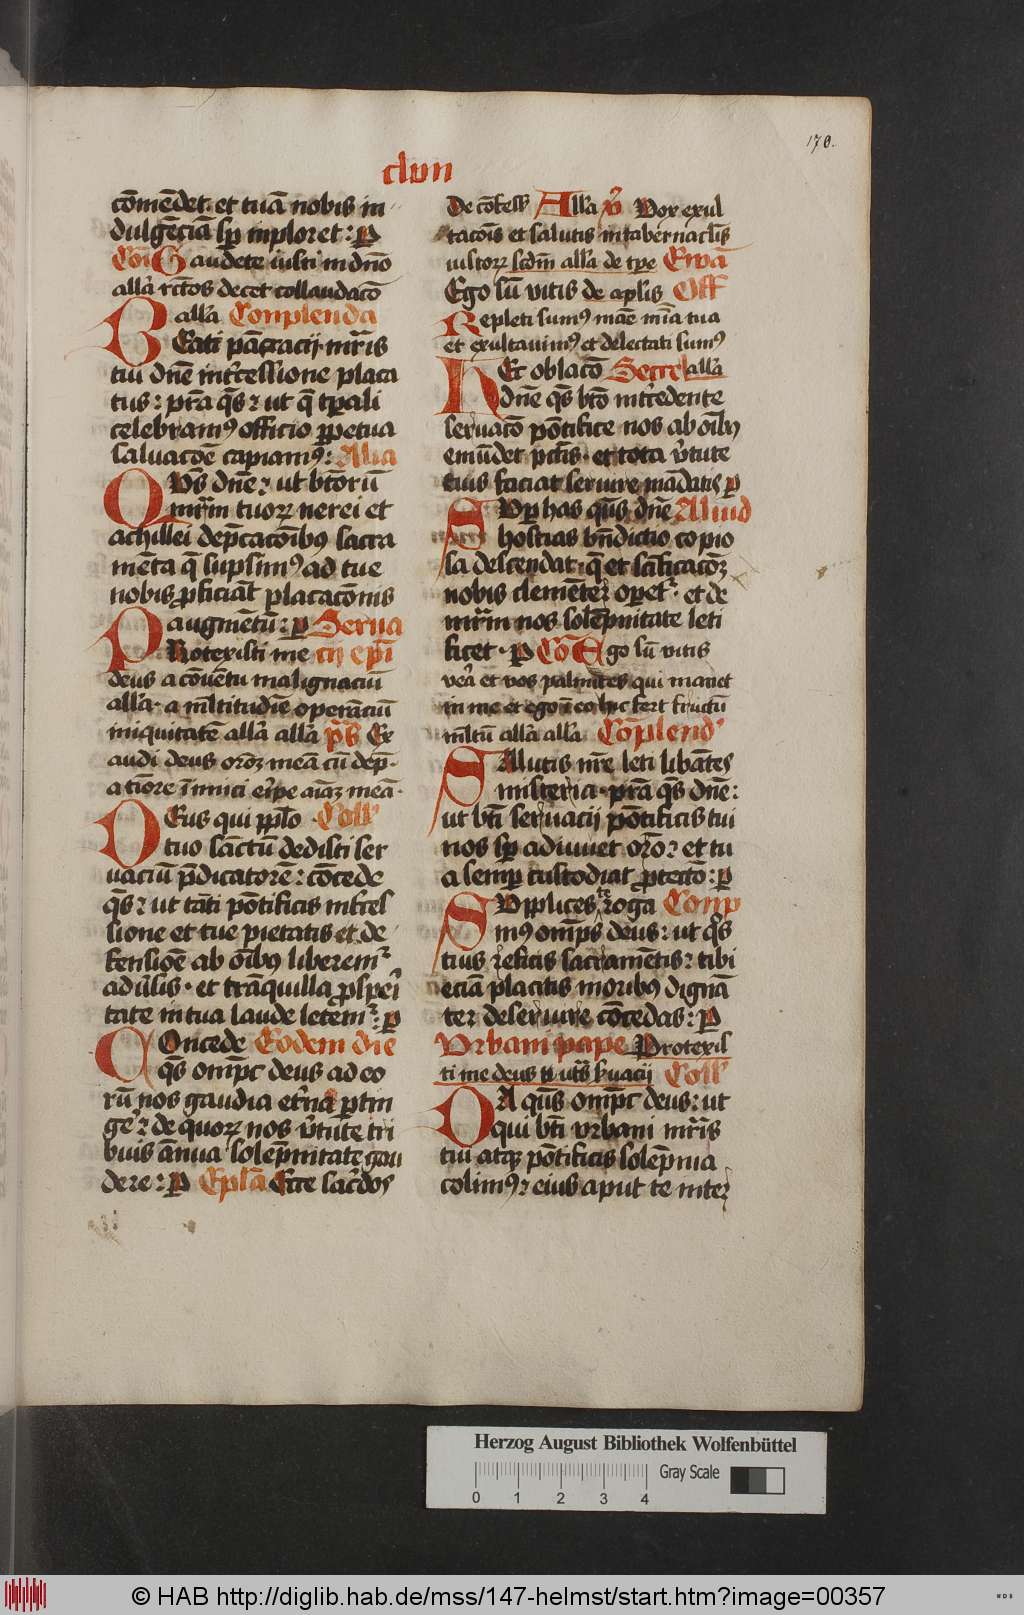 170.
clvii
cōmēdet. et tuā nobis in
dulgēciā sp̄ inploret: P
Cōi Gaudete iusti in dn̄o
alla rctōs decet collaudacō
alla Conplenda
Beati pācracij mr̄is
tui dn̄e int̄cessione placa
tus: pr̄a q̄s: ut q̄ tp̄ali
celebramꝰ officio ꝑpetua
saluacōe capiamꝰ: Alia
Qvs dn̄e: ut btōrū
mr̄m tuoꝝ nerei et
achillei dep̄cacōībꝰ sacra
mēta q̄ sūpsimꝰ ad tue
nobis ꝓficiāt placacōnis
augmētū: P Serua
Protexisti me cij ep̄i
deus a cōuētu malignaciū
alla. a m̄ltitudīe operāciū
iniquitatē alla alla p̄s Ex
audi deus orōꝫ meā cū dep̄.
a tīore īimici eīpe aīaꝫ meā.
Deus qui ppl̄o Coll
tuo sāctū dedisti ser
uaciū p̄dicatorē: cōcede
q̄s: ut tāti pōtificis int̄ces
sione et tue pietatis et de
fensiōe ab oībꝰ liberemr̄
aduīsis. et trāquilla ꝓspeī
tate in tua laude letemr̄: P
Concede Eodem die
q̄s omp̄c deus ad eo
rū nos gaudia et̄na ꝑtin
geꝛ: de quoꝝ nos v̄tute tri
buis ānua solēpnitate gau
dere: P Epl̄a Ecce sac̄dos
De cōfess Alla v̄ Vox exul
tacōis et salutis in tabernacl̄is
iustoꝝ scdm̄ alla de tp̄e Ewā
Ego sū vitis de apl̄is Off
Repleti sumꝰ mane mīa tua
et exultauimꝰ et delectati sumꝰ
Hec oblacō Secret alla
dn̄e q̄s btō int̄cedente
seruacō pōtifice nos ab oībꝰ
emūdet pctīs. et tota v̄tute
tuis faciat seruire mādatis P
Svꝑ has q̄us dn̄e Aliud
hostias bn̄dictio copio
sa descendat. q̄ et sc̄ificacōꝫ
nobis clementer opetr̄. et de
mr̄m nos solēpnitate leti
ficet. P Cō Ego sū vitis
vēa et vos palmites qui manet
in me et ego ī eo hic fert fructū
m̄ltū alla alla Cōplend
Salutis nr̄e leti libātes
misteria. pr̄a q̄s dn̄e:
ut bt̄i seruacij pōtificis tui
nos sp̄ adiuuet or̄o: et tu
a semꝑ custodiat ꝓtectō: P
Svpplices te roga Conp
mꝰ omp̄s deus: ut q̄s
tuis reficis sacramētis: tibi
eciā placitis moribꝰ dignā
ter deseruire cōcedas: P
Vrbani pape Protexis
ti me deus ut s̄uacij Coll
Da q̄us omp̄c deus: ut
qui bt̄i vrbani mr̄is
tui atqꝫ pōtificis solēpnia
colimꝰ: eius aput te inter
Herzog August Bibliothek Wolfenbüttel
Gray Scale
0 1 2 3 4
© HAB http://diglib.hab.de/mss/147-helmst/start.htm?image=00357
WDB